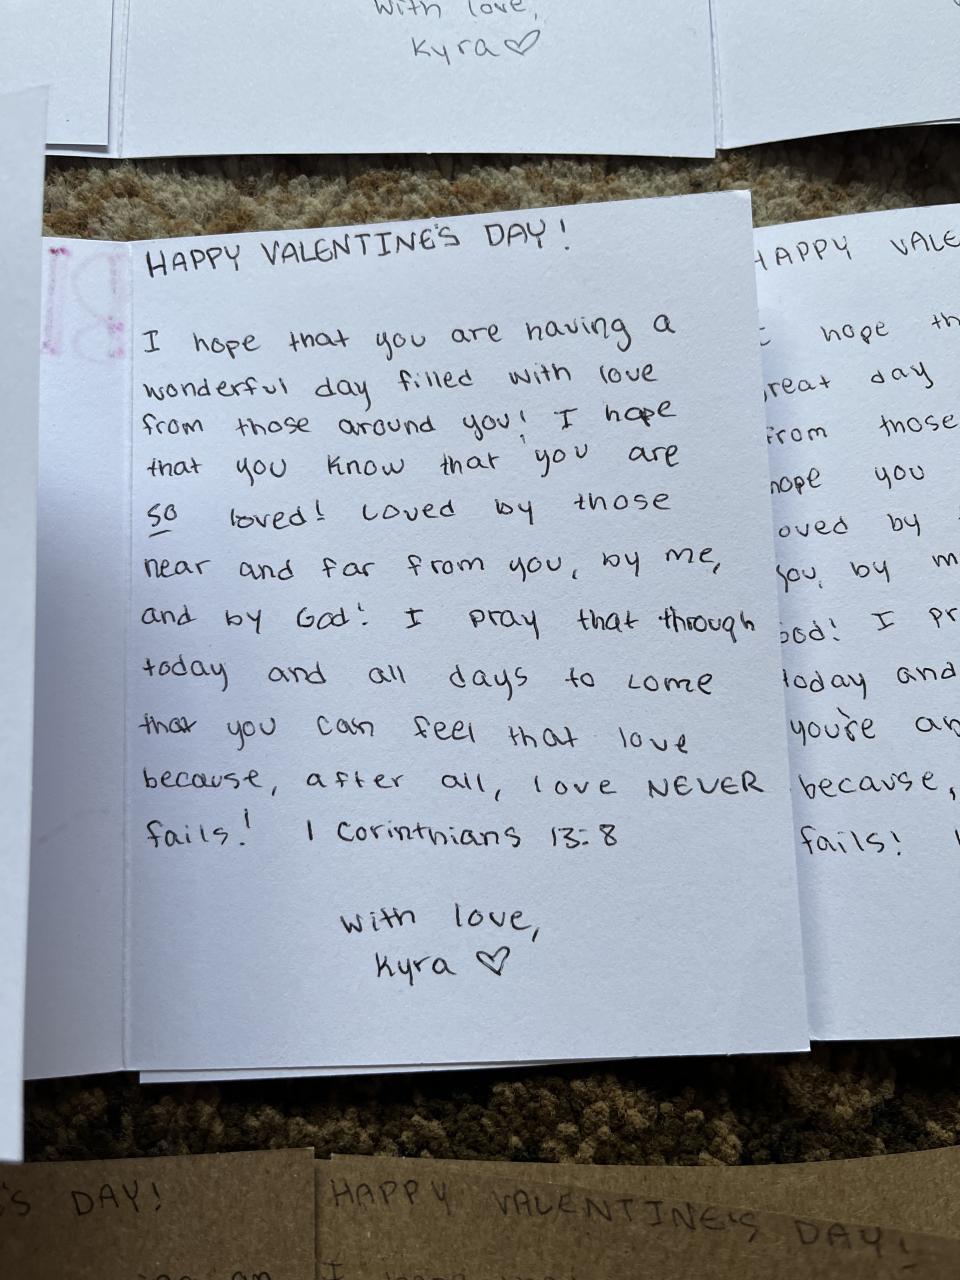 with love,
Kyra ♡
HAPPY VALENTINE'S DAY!
I hope that you are having a
wonderful day filled with love
from those around you! I hope
that you know that you are
so loved! Loved by those
near and far from you, by me,
and by God! I pray that through
today and all days to come
that you can feel that love
because, after all, love NEVER
fails! 1 Corinthians 13:8
With love,
Kyra ♡
HAPPY VALE
hope th
reat day
from those
hope you
oved by
you, by m
God! I pr
today and
you're an
because,
fails!
'S DAY!
HAPPY VALENTINE'S DAY!